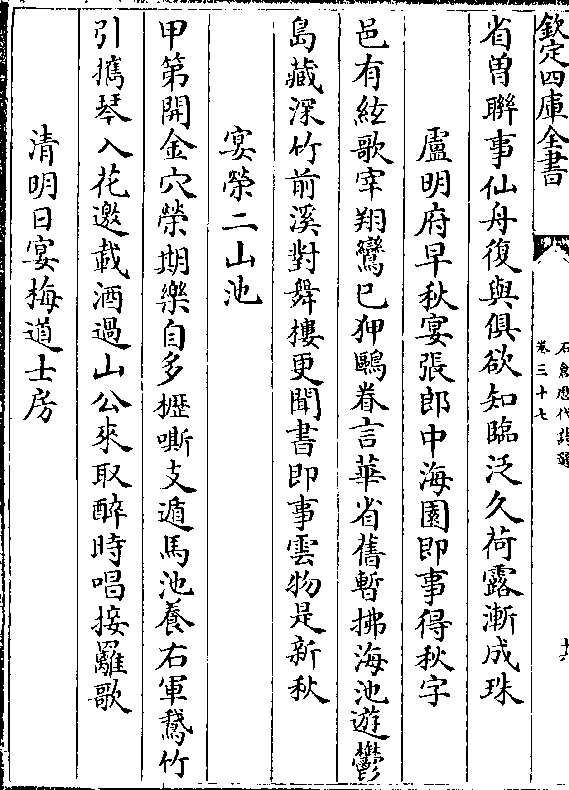 欽定四庫全書
石倉歷代詩選
卷三十七
省曽聯事仙舟復與俱欲知臨泛久荷露漸成珠
盧明府早秋宴張郎中海園即事得秋字
邑有絃歌宰翔鸞已狎鷗眷言華省舊暫拂海池遊鬱
島藏深竹前溪對舞樓更聞書即事雲物是新秋
宴榮二山池
甲第開金穴榮期樂自多櫪嘶支遁馬池養右軍鵞竹
引攜琴入花邀載酒過山公來取醉時唱接䍦歌
清明日宴梅道士房